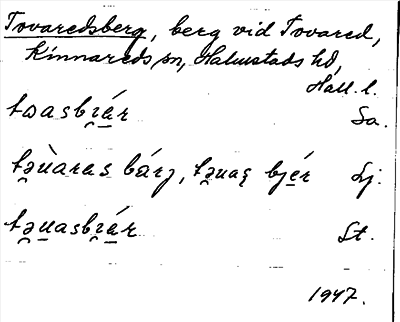 Tovaredsberg, berg vid Tovared,
Kinnareds sn, Halmstads hd,
Hall. l.
tɷasbɪ̯á̠r Sa.
tə̯ùaras bárȷ, tə̯uas̨ bjé̠r Lj.
tə̯u̠asbɪ̯á̠r St.
1947.